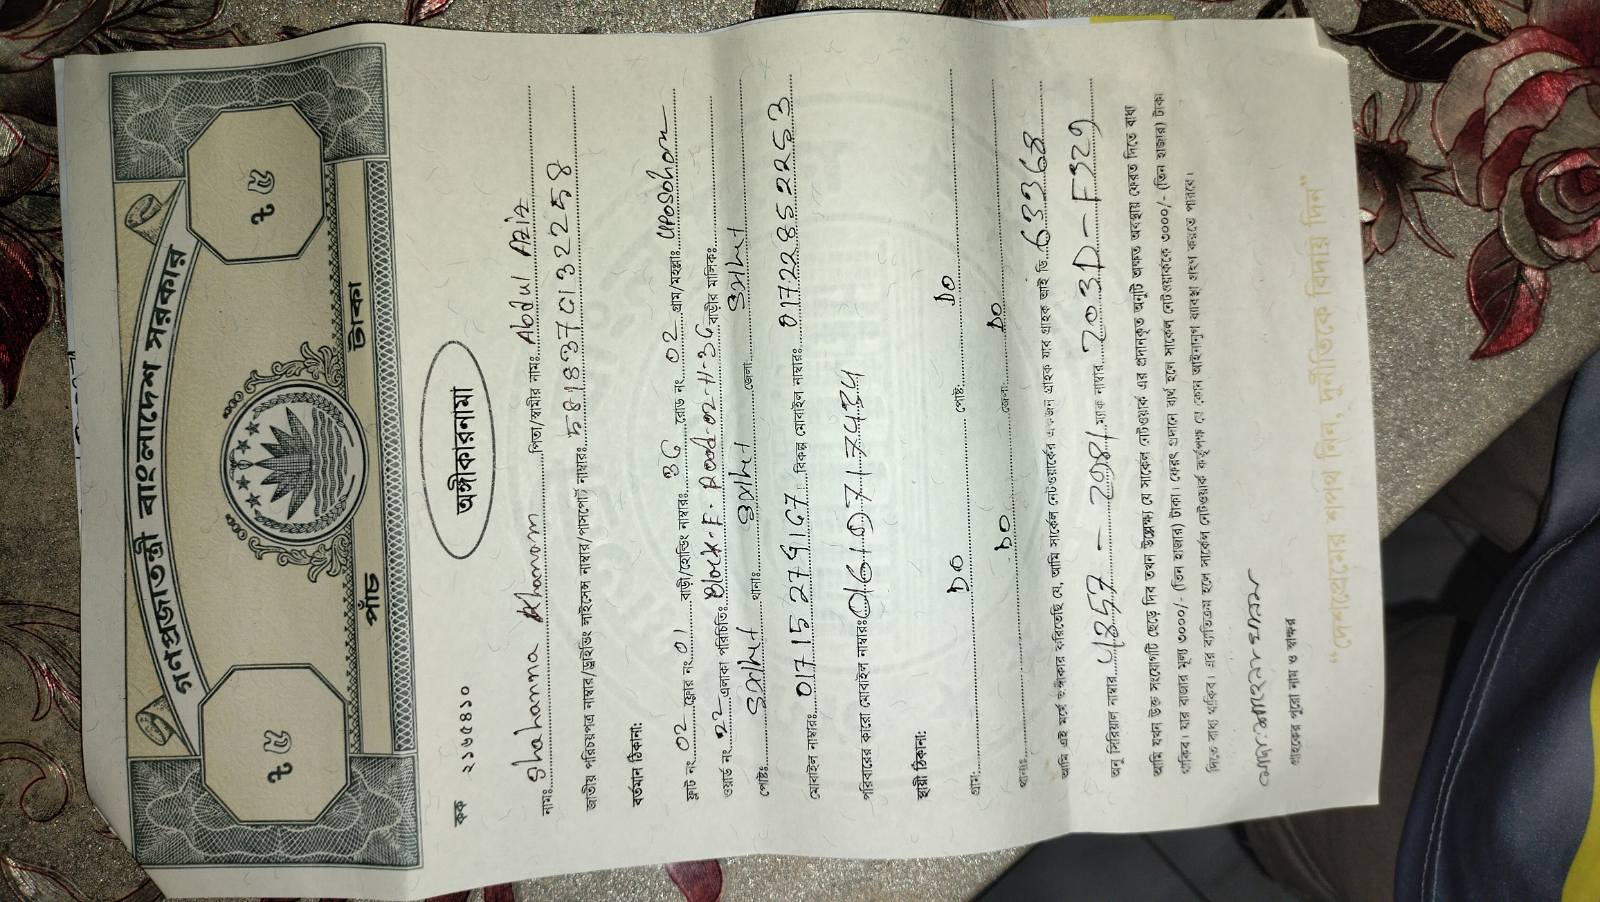 গণপ্রজাতন্ত্রী বাংলাদেশ সরকার
৳ ৫
৳ ৫
পাঁচ টাকা
কক ২১৬৫৪১০
অঙ্গীকারনামা
নামঃ Shahanna Khanom পিতা/স্বামীর নাম: Abdul Aziz
জাতীয় পরিচয়পত্র নাম্বার/ড্রাইভিং লাইসেন্স নাম্বার/পাসপোর্ট নাম্বার:
বর্তমান ঠিকানা:
ফ্লাট নং 02 ফ্লোর নং 01 বাড়ী/হোল্ডিং নাম্বার: 36 রোড নং 02 গ্রাম/মহল্লা: Uposohor
ওয়ার্ড নং 22 এলাকা পরিচিতি: Block-F. Road-02-H-36 বাড়ীর মালিক:
পোষ্ট: থানাঃ জেলা:
মোবাইল নাম্বার: বিকল্প মোবাইল নাম্বার:
পরিবারের কারো মোবাইল নাম্বার:
স্থায়ী ঠিকানা:
গ্রাম: DO পোষ্ট: DO
থানাঃ DO জেলা: DO
আমি এই মর্মে অঙ্গীকার করিতেছি যে, আমি সার্কেল নেটওয়ার্কের একজন গ্রাহক যার গ্রাহক আই ডি
অনু সিরিয়াল নাম্বার ম্যাক নাম্বার
আমি যখন উক্ত সংযোগটি ছেড়ে দিব তখন উল্লেখ্য যে সার্কেল নেটওয়ার্ক এর প্রদানকৃত অনুটি অক্ষত অবস্থায় ফেরত দিতে বাধ্য
থাকিব। যার বাজার মূল্য ৩০০০/- (তিন হাজার) টাকা। ফেরৎ প্রদানে ব্যর্থ হলে সার্কেল নেটওয়ার্ককে ৩০০০/- (তিন হাজার) টাকা
দিতে বাধ্য থাকিব। এর ব্যতিক্রম হলে সার্কেল নেটওয়ার্ক কর্তৃপক্ষ যে কোন আইনানুগ ব্যবস্থা গ্রহণ করতে পারবে।
গ্রাহকের পুরো নাম ও স্বাক্ষর
“দেশপ্রেমের শপথ নিন, দুর্নীতিকে বিদায় দিন”